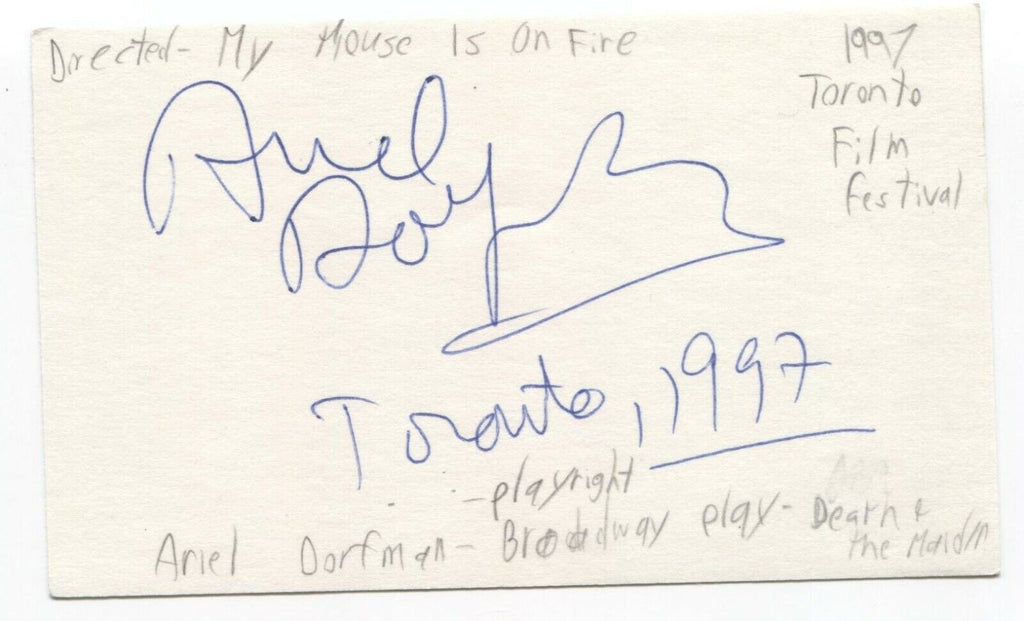 Directed- My House Is On Fire
1997
Toronto
Film
Festival
Ariel
Dorfman
Toronto, 1997
-playright
Ariel Dorfman- Broadway play- Death &
the Maiden